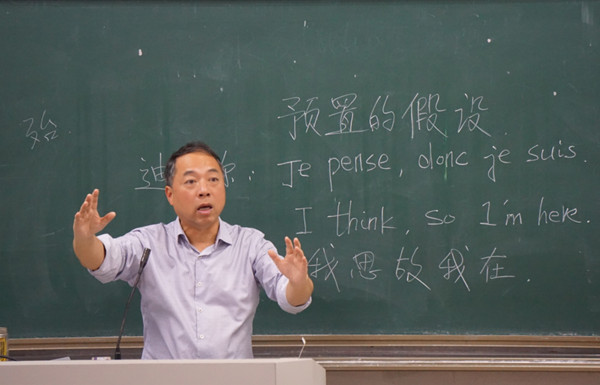 预置的假设.
殆.
迪 尔: Je pense, donc je suis.
I think, so I'm here.
我思故我在.